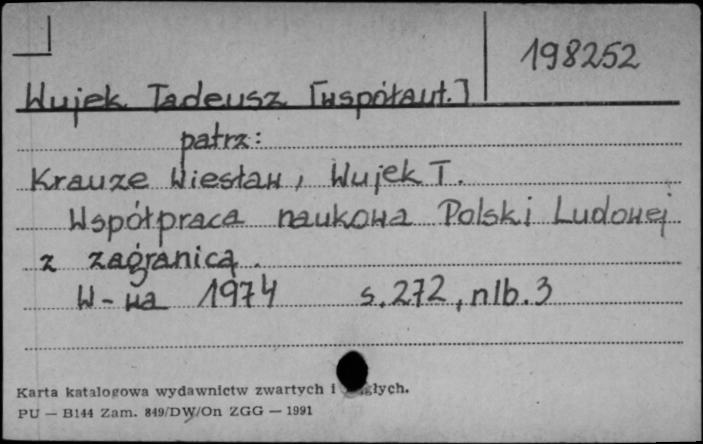 198252
Wujek Tadeusz [współaut.]
patrz:
Krauze Wiesław, Wujek T.
Współpraca naukowa Polski Ludowej
z zagranicą.
W-wa 1974 s. 272, nlb. 3
Karta katalogowa wydawnictw zwartych i
PU — B144 Zam. 849/DW/On ZGG — 1991